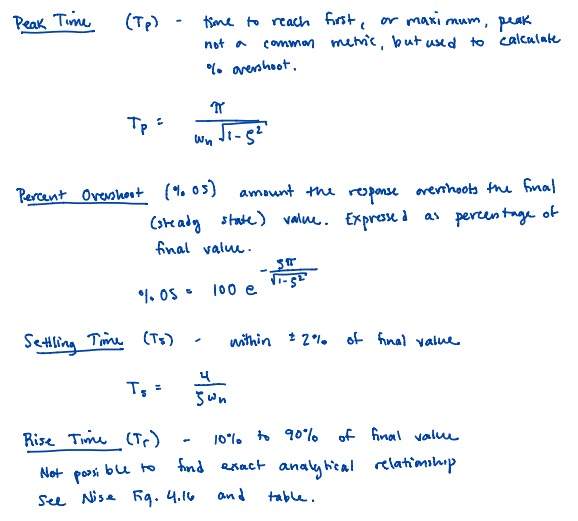 Peak Time (Tp) - time to reach first, or maximum, peak
not a common metric, but used to calculate
% overshoot.
Tp = π / (ωn √(1-ζ²))
Percent Overshoot (% OS) amount the response overshoots the final
(steady state) value. Expressed as percentage of
final value.
% OS = 100 e^(-ζπ/√(1-ζ²))
Settling Time (Ts) - within ± 2% of final value
Ts = 4 / (ζωn)
Rise Time (Tr) - 10% to 90% of final value
Not possible to find exact analytical relationship
See Nise Fig. 4.16 and table.